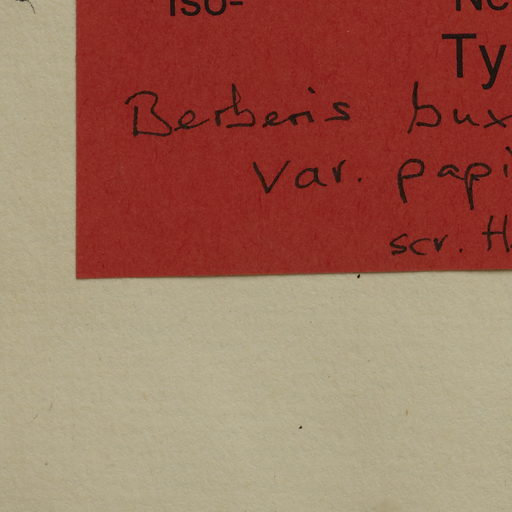 Iso- Ne
Ty
Berberis bux
var. papi
scr. H